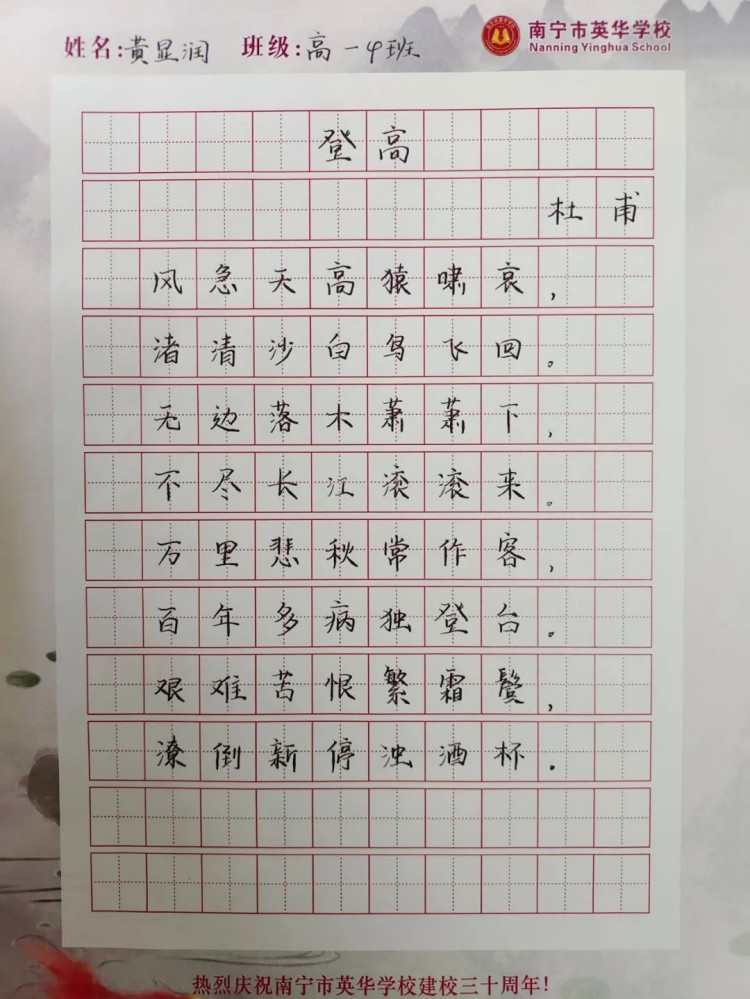 姓名:黄显润 班级:高一4班
南宁市英华学校
Nanning Yinghua School
登高
杜甫
风急天高猿啸哀,
渚清沙白鸟飞回。
无边落木萧萧下,
不尽长江滚滚来。
万里悲秋常作客,
百年多病独登台。
艰难苦恨繁霜鬓,
潦倒新停浊酒杯.
热烈庆祝南宁市英华学校建校三十周年!